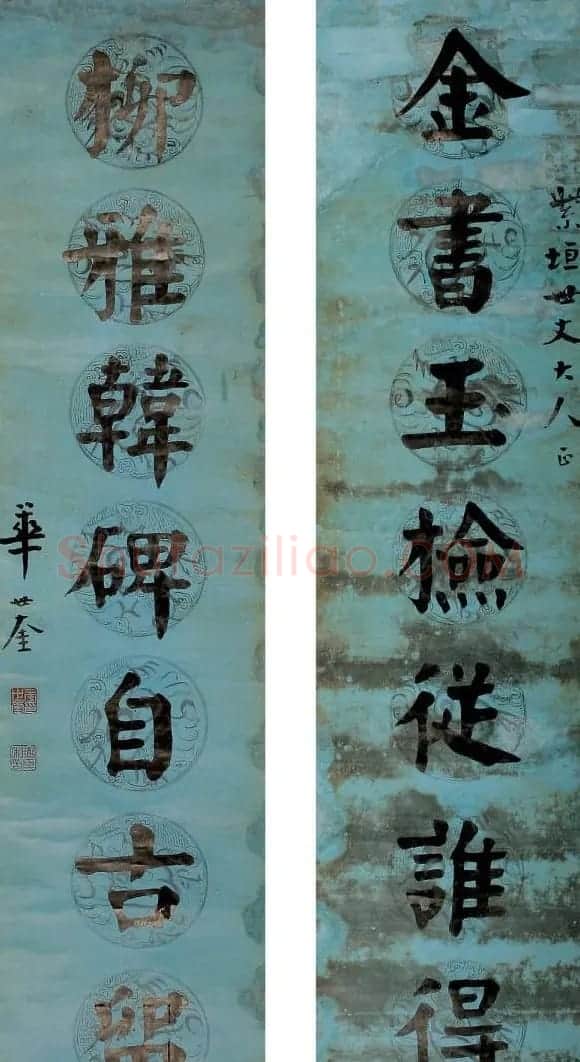 紫垣世丈大人正
金書玉檢從誰得
柳雅韓碑自古留
華世奎
ShufaZiliao.COM